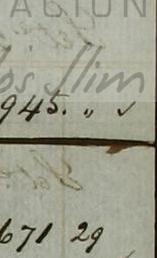 ACION
los Slim
945. " ✓
671 29